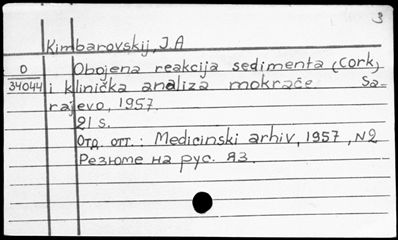 3
Kimbarovskij, J.A
O Obojena reakcija sedimenta (Cork)
34044 i klinička analiza mokraće. Sa-
rajevo, 1957.
21 s.
Отд. отт.: Medicinski arhiv, 1957, N2
Резюме на рус. яз.